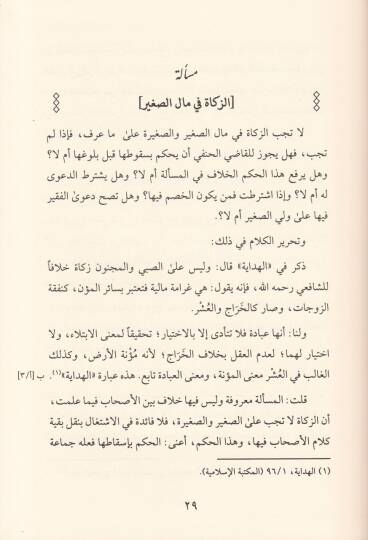 مسألة
[الزكاة في مال الصغير]
لا تجب الزكاة في مال الصغير والصغيرة على ما عرف، فإذا لم
تجب، فهل يجوز للقاضي الحنفي أن يحكم بسقوطها قبل بلوغها أم لا؟
وهل يرفع هذا الحكم الخلاف في المسألة أم لا؟ وهل يشترط الدعوى
له أم لا؟ وإذا اشترطت فمن يكون الخصم فيها؟ وهل تصح دعوى الفقير
فيها على ولي الصغير أم لا؟.
وتحرير الكلام في ذلك:
ذكر في «الهداية» قال: وليس على الصبي والمجنون زكاة خلافاً
للشافعي رحمه الله، فإنه يقول: هي غرامة مالية فتعتبر بسائر المؤن، كنفقة
الزوجات، وصار كالخَرَاج والعُشْر.
ولنا: أنها عبادة فلا تتأدى إلا بالاختيار؛ تحقيقاً لمعنى الابتلاء، ولا
اختيار لهما؛ لعدم العقل بخلاف الخَرَاج؛ لأنه مُؤْنة الأرض، وكذلك
الغالب في العُشْر معنى المؤنة، ومعنى العبادة تابع. هذه عبارة «الهداية»(١). ب [٣/أ]
قلت: المسألة معروفة وليس فيها خلاف بين الأصحاب فيما علمت،
أن الزكاة لا تجب على الصغير والصغيرة، فلا فائدة في الاشتغال بنقل بقية
كلام الأصحاب فيها، وهذا الحكم، أعني: الحكم بإسقاطها فعله جماعة
(١) الهداية، ٩٦/١ (المكتبة الإسلامية).
٢٩